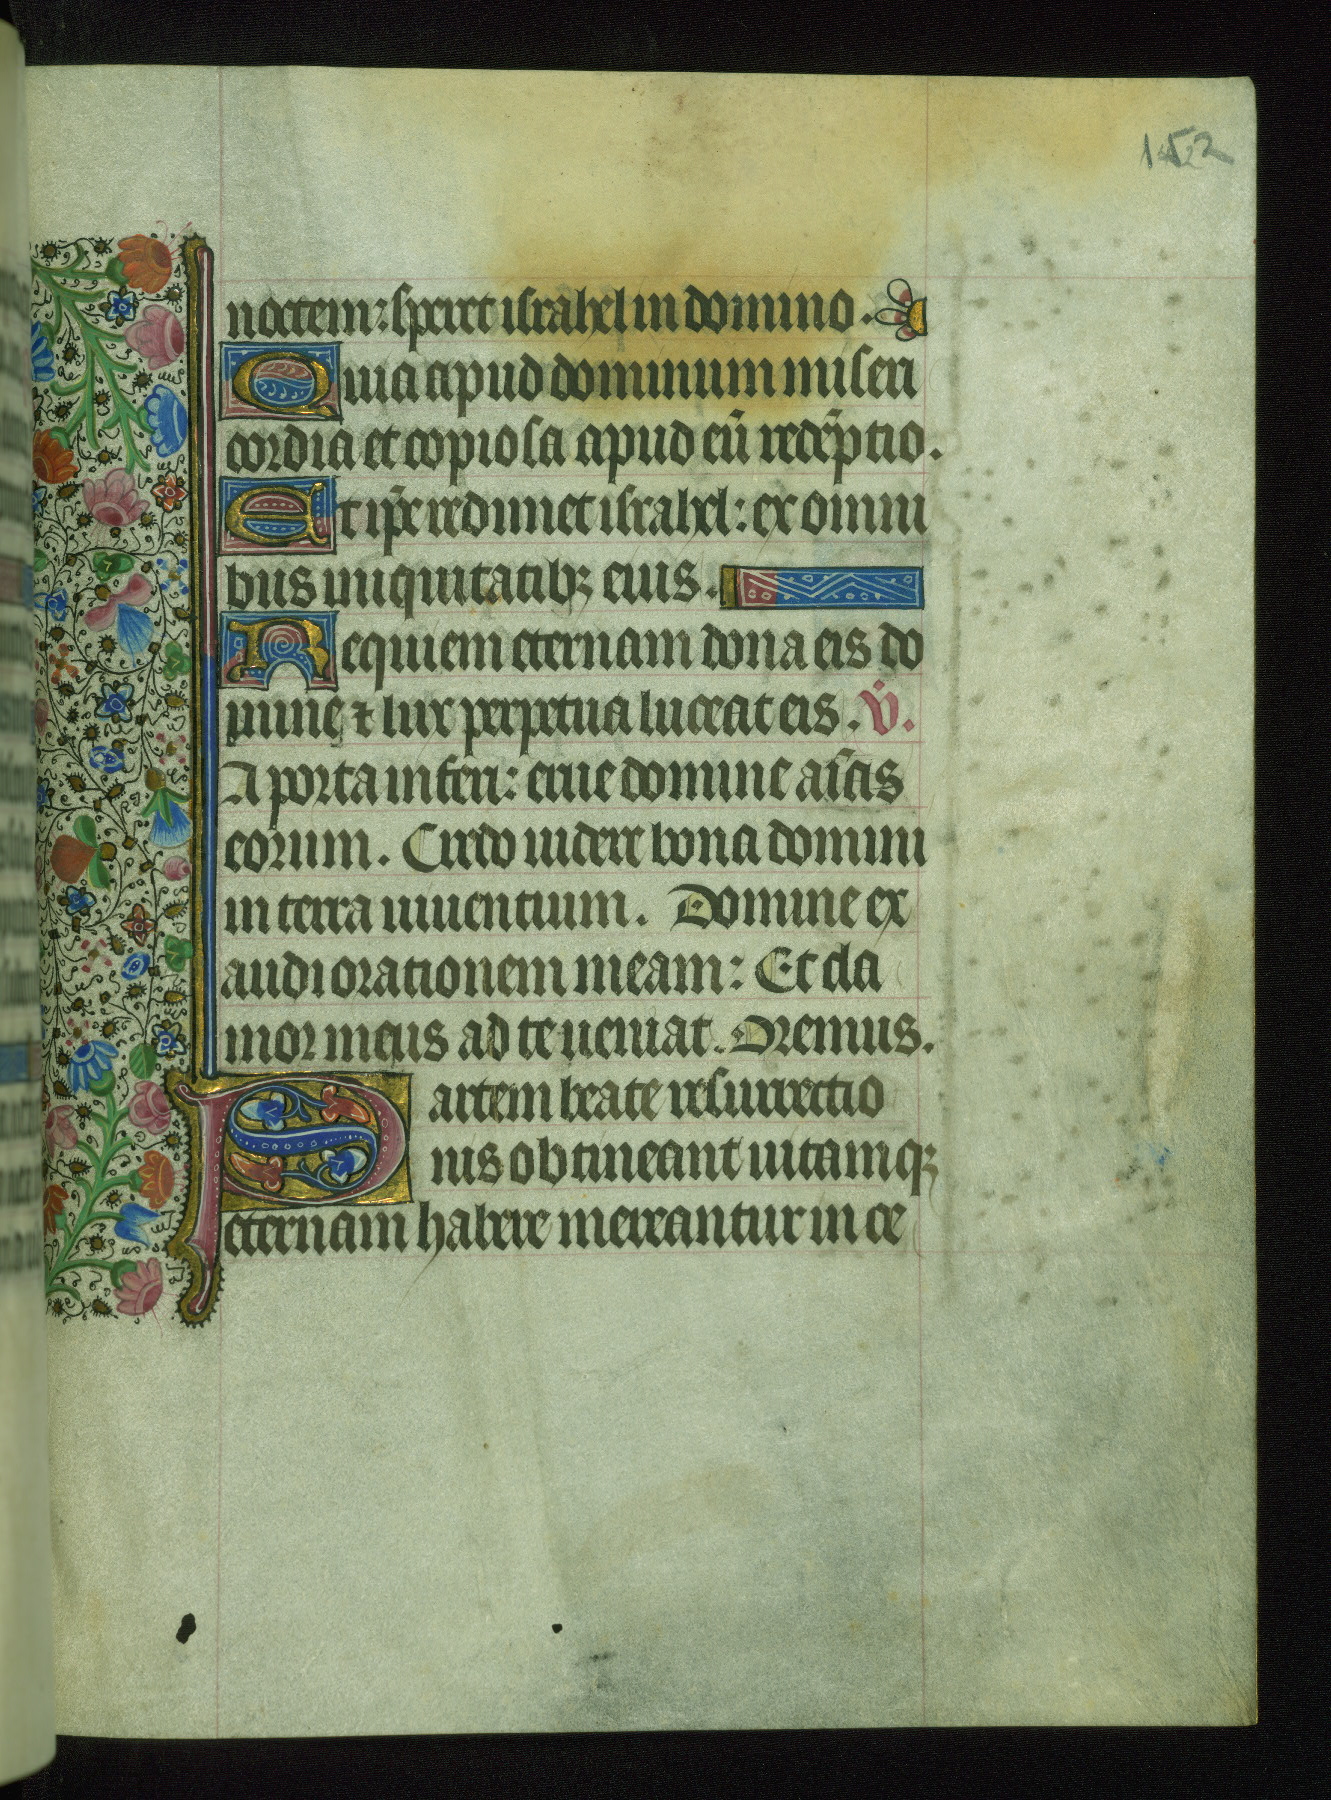 152
noctem: speret israhel in domino.
Quia apud dominum miseri
cordia et copiosa apud eū redēptio.
Et ip̄e redimet israhel: ex omni
bus iniquitatibꝫ eius.
Requiem eternam dona eis do
mine ⁊ lux perpetua luceat eis. V̇.
A porta inferi: erue domine aīas
eorum. Credo uidere bona domini
in terra uiuentium. Domine ex
audi orationem meam: Et cla
mor meus ad te ueniat. Oremus.
Partem beate resurrectio
nis obtineant uitamqꝫ
eternam habere mereantur in ce